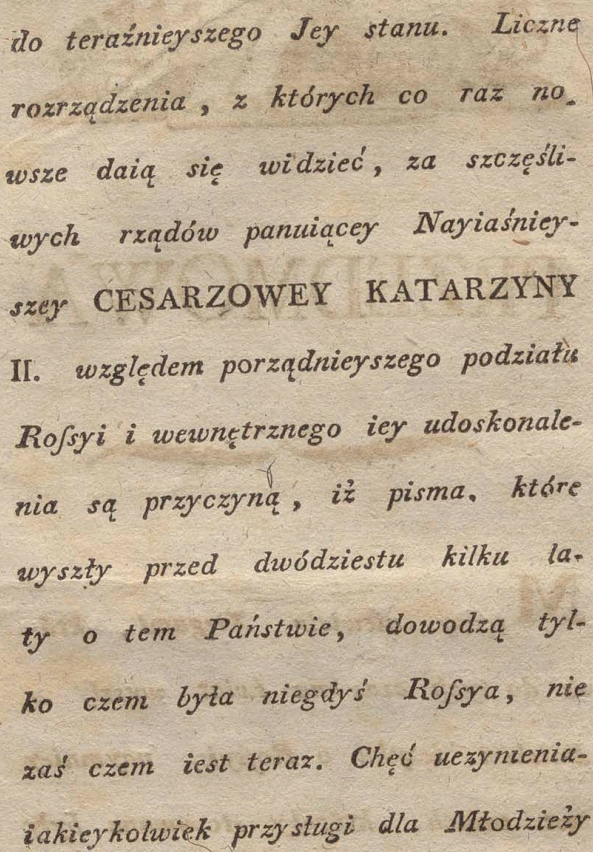 do teraźnieyszego Jey stanu. Liczne
rozrządzenia, z których co raz no-
wsze daią się widzieć, za szczęśli-
wych rządów panuiącey Nayiaśniey-
szey CESARZOWEY KATARZYNY
II. względem porządnieyszego podziału
Roſsyi i wewnętrznego iey udoskonale-
nia są przyczyną, iż pisma, które
wyszły przed dwódziestu kilku la-
ty o tem Państwie, dowodzą tyl-
ko czem była niegdyś Roſsya, nie
zaś czem iest teraz. Chęć uezynienia-
iakieykolwiek przysługi dla Młodzieży